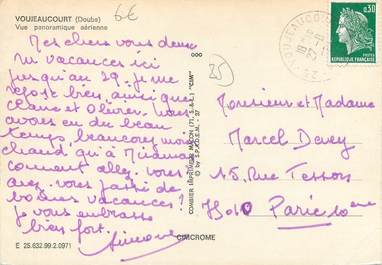 VOUJEAUCOURT (Doubs)
Vue panoramique aérienne
6€
Mes chers vous deux
vacances ici
jusqu'au 29. je me
repose bien, ainsi que
et Olivier. Nous
avons eu du beau
temps, beaucoup moins
chaud qu'à
comment allez-vous
avez-vous passé de
bonnes vacances?
je vous embrasse
bien fort.
Simone
E 25.632.99.2.0971
COMBIER IMPRIMEUR MACON (71, S.-&-L.) "CIM"
© by S.P.A.D.E.M. - 37
CIMCROME
25
0,30
POSTES
REPUBLIQUE FRANÇAISE
Monsieur et Madame
Marcel
15 Rue
75010 Paris 10eme